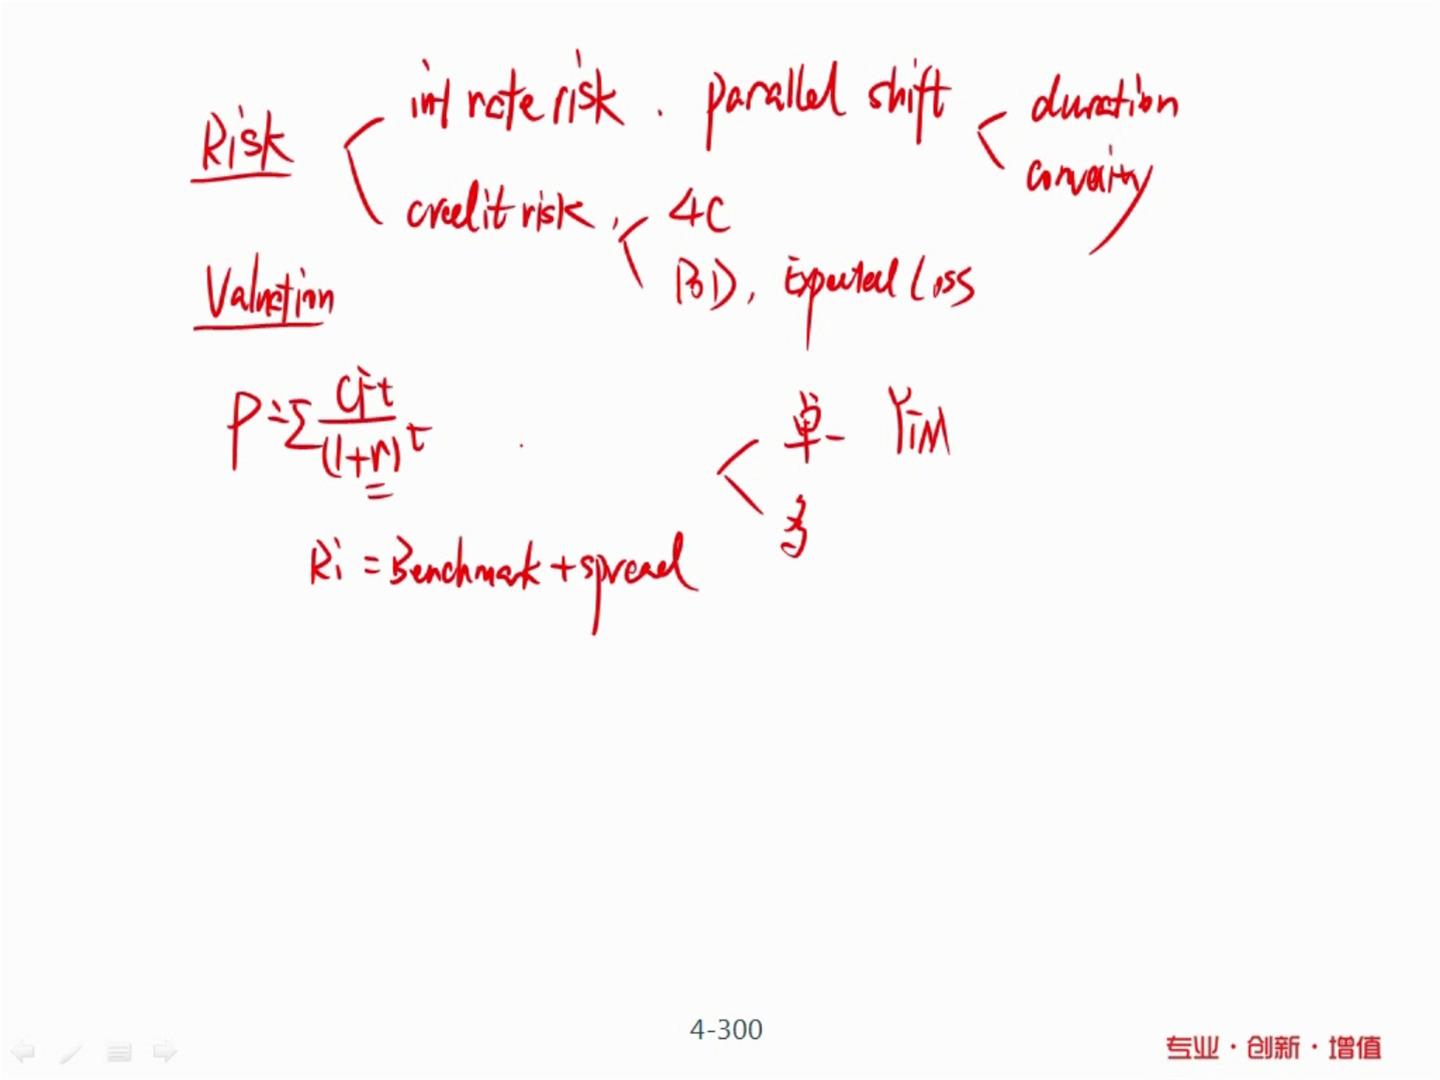 Risk
int rate risk . parallel shift
duration
convexity
credit risk ,
4C
PD, Expected Loss
Valuation
P = Σ CFt / (1+r)^t
单一 YTM
多
Ri = Benchmark + spread
4-300
专业·创新·增值